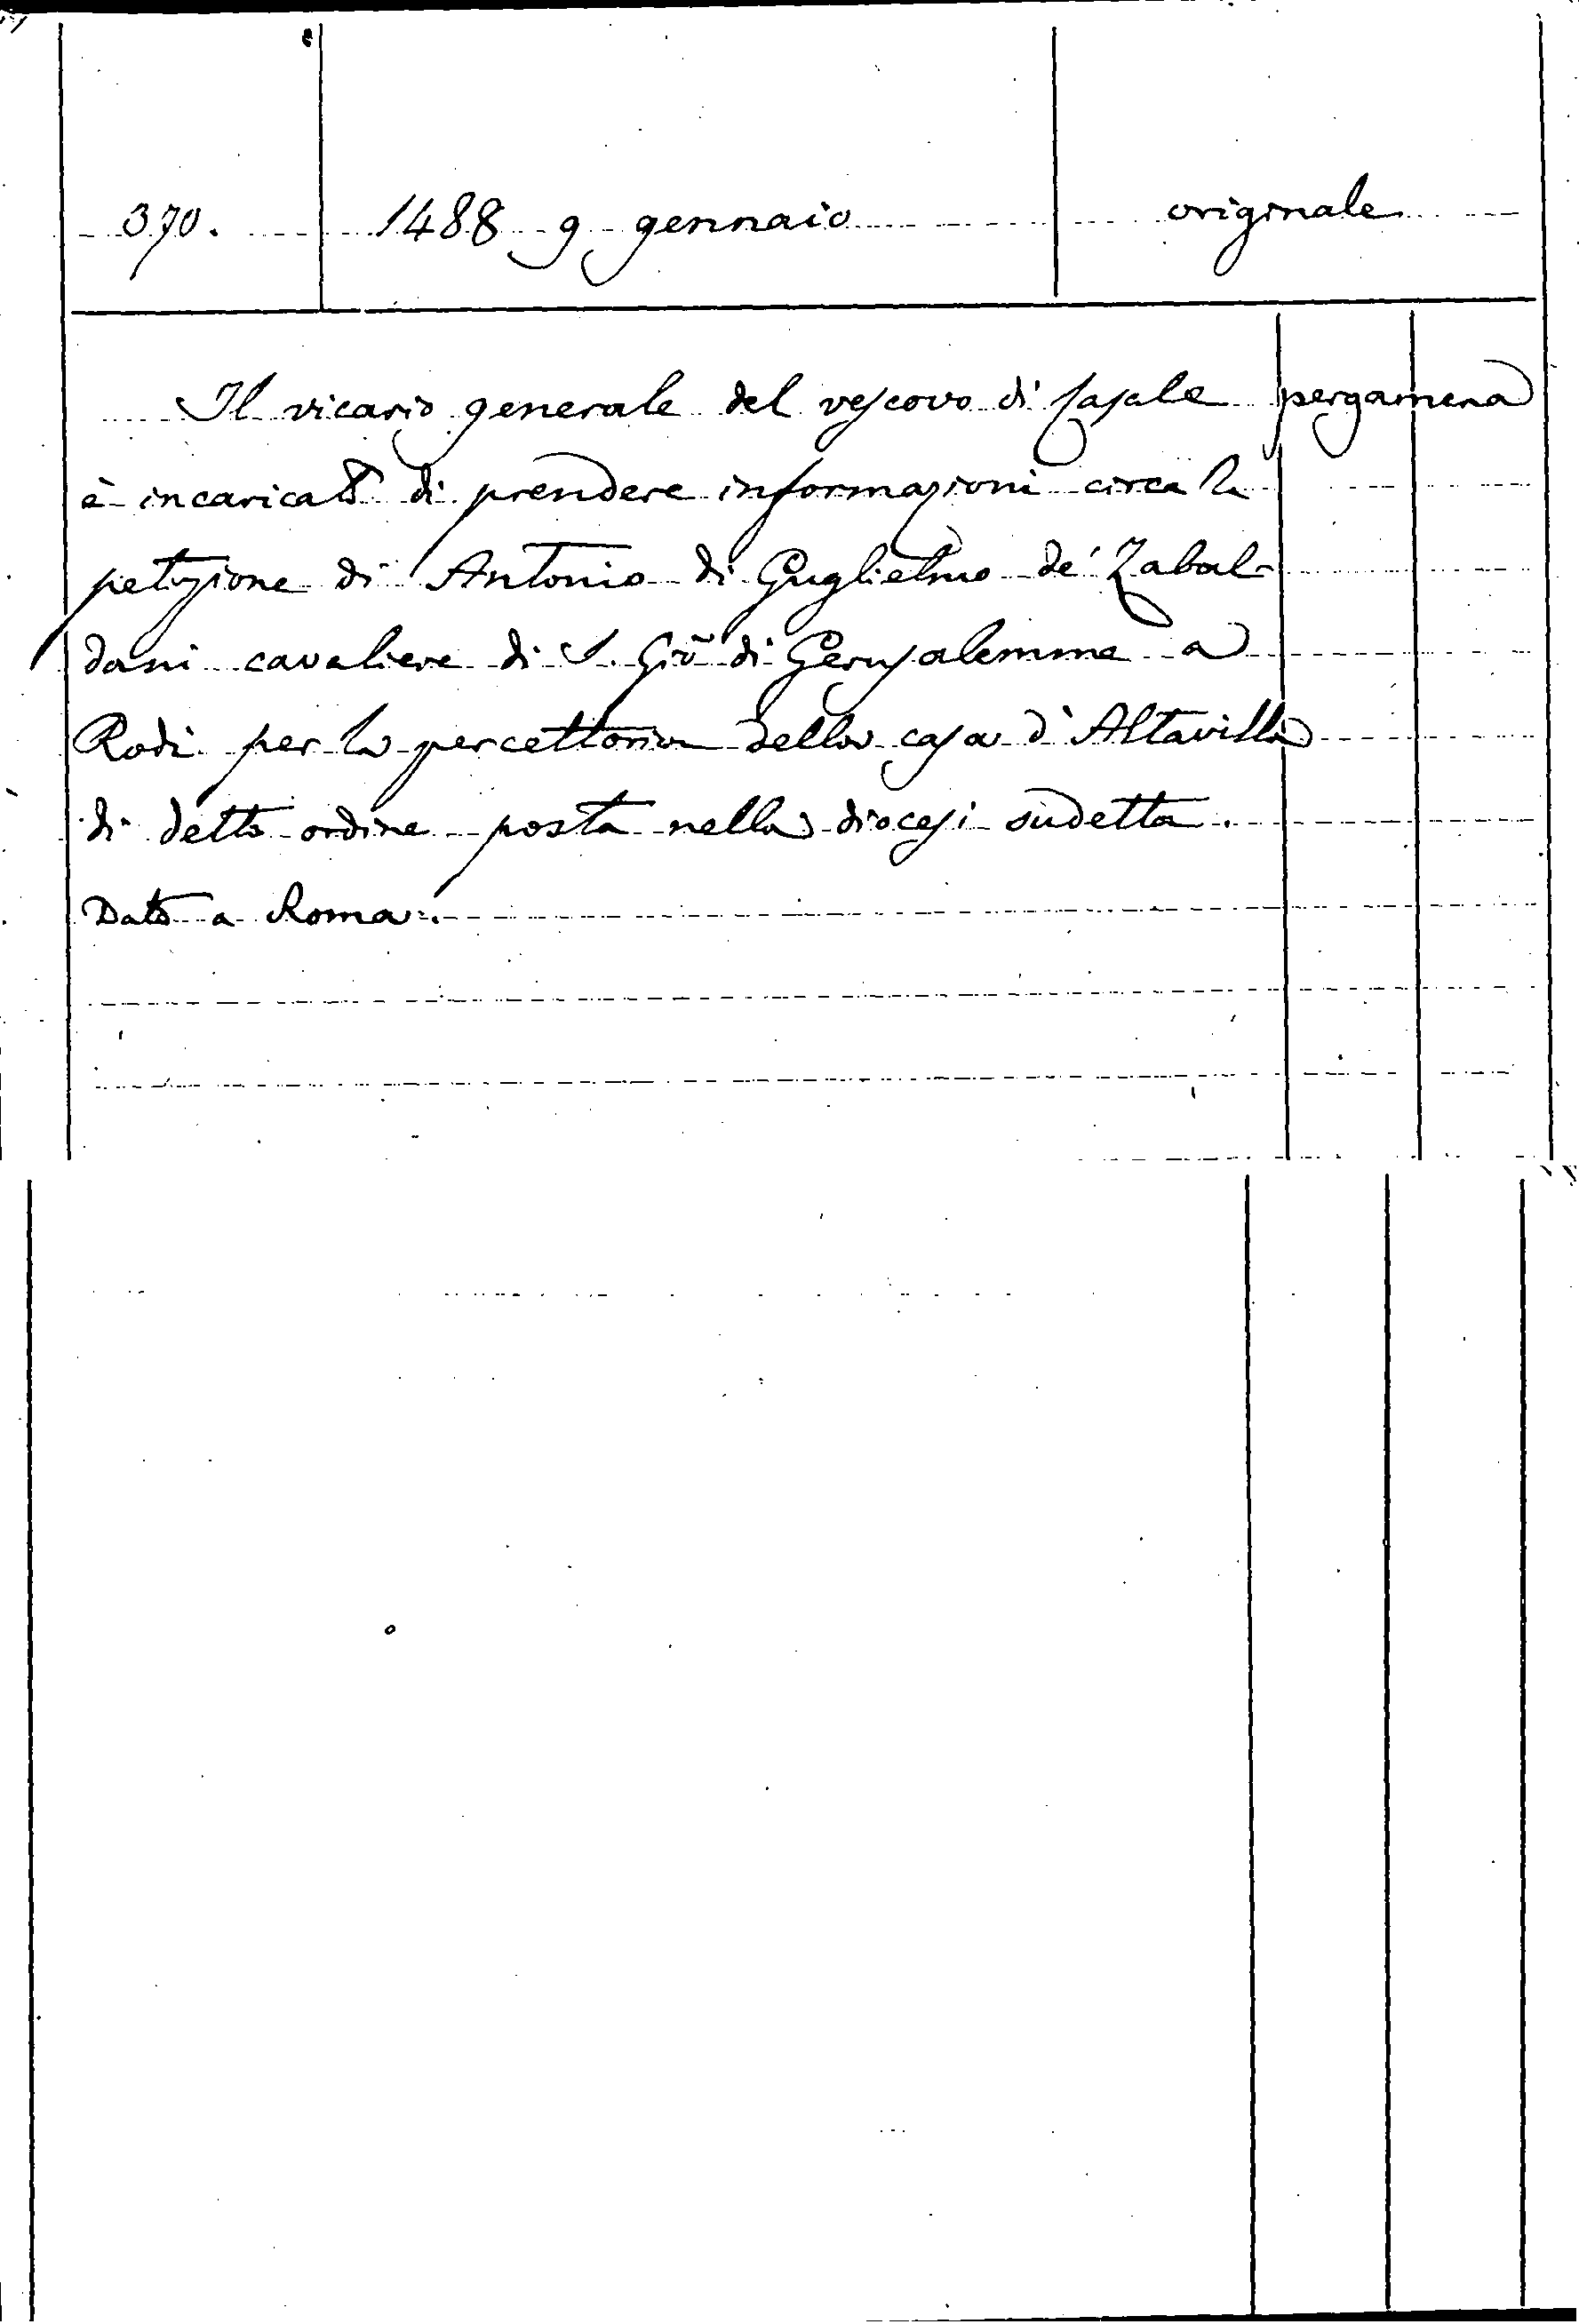 370. 1488 9 gennaio originale
Il vicario generale del vescovo di Casale pergamena
è incaricato di prendere informazioni circa la
petizione di Antonio di Guglielmo de' Zabal-
dani cavaliere di S. Giõ di Gerusalemme a
Rodi per la percettoria della casa d'Altavilla
di detto ordine posta nella diocesi sudetta.
Dato a Roma.